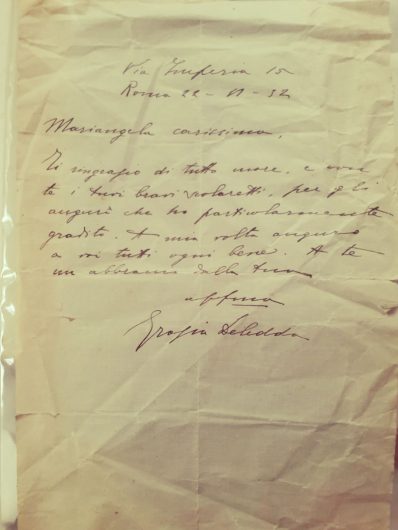 Via Imperia 15
Roma 22 - VI - 32
Mariangela carissima,
Ti ringrazio di tutto cuore, e con
te i tuoi bravi scolaretti, per gli
auguri che ho particolarmente
gradito. A mia volta auguro
a voi tutti ogni bene. A te
un abbraccio dalla tua
aff.ma
Grazia Deledda